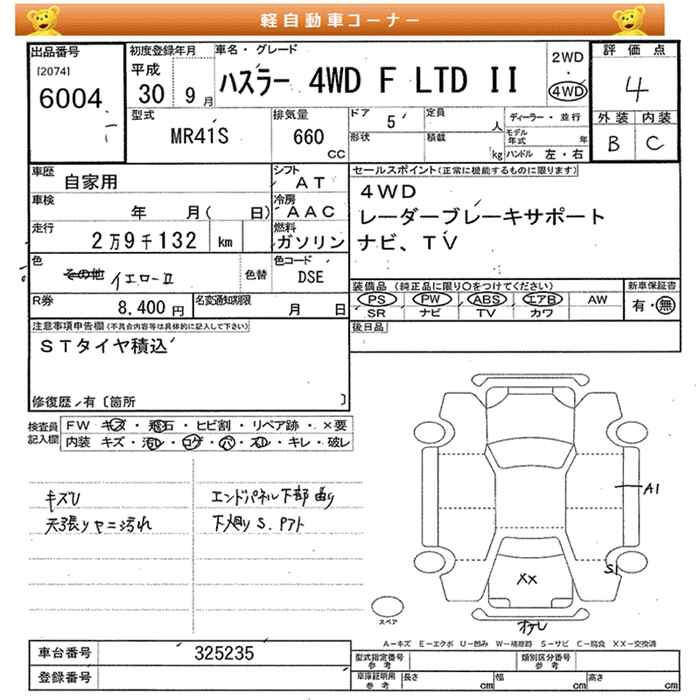 軽自動車コーナー
出品番号
[2074]
6004
初度登録年月
平成
30 9月
車名・グレード
ハスラー 4WD F LTD II
2WD
・
4WD
評価点
4
型式
MR41S
排気量
660
CC
ドア 5
形状
定員
人
積載
kg
ディーラー・並行
モデル年式 年
ハンドル 左・右
外装 内装
B C
車歴
自家用
シフト
AT
セールスポイント(正常に機能するものに限ります)
4WD
レーダーブレーキサポート
ナビ、TV
車検
年 月( 日)
冷房
AAC
走行
2万9千132 km
燃料
ガソリン
色
その他 イエローII
色替
色コード
DSE
装備品 (純正品に限り○をつけてください)
PS PW ABS エアB AW
SR ナビ TV カワ
新車保証書
有・無
R券
8,400円
名変通知期限
月 日
後日品
注意事項申告欄(不具合内容等は具体的に記入して下さい)
STタイヤ積込
修復歴・有〔箇所 〕
検査員記入欄
FW キズ・飛石・ヒビ割・リペア跡・×要
内装 キズ・汚れ・コゲ・穴・スレ・キレ・破レ
キズU
天張りヤニ汚れ
エンドパネル下部曲り
下廻りS、Pアト
A1
S1
XX
スペア
A−キズ E−エクボ U−凹み W−補修跡 S−サビ C−腐食 XX−交換済
車台番号 325235
登録番号
型式指定番号
参考
類別区分番号
参考
車庫証明用
参考
長さ cm
幅 cm
高さ cm